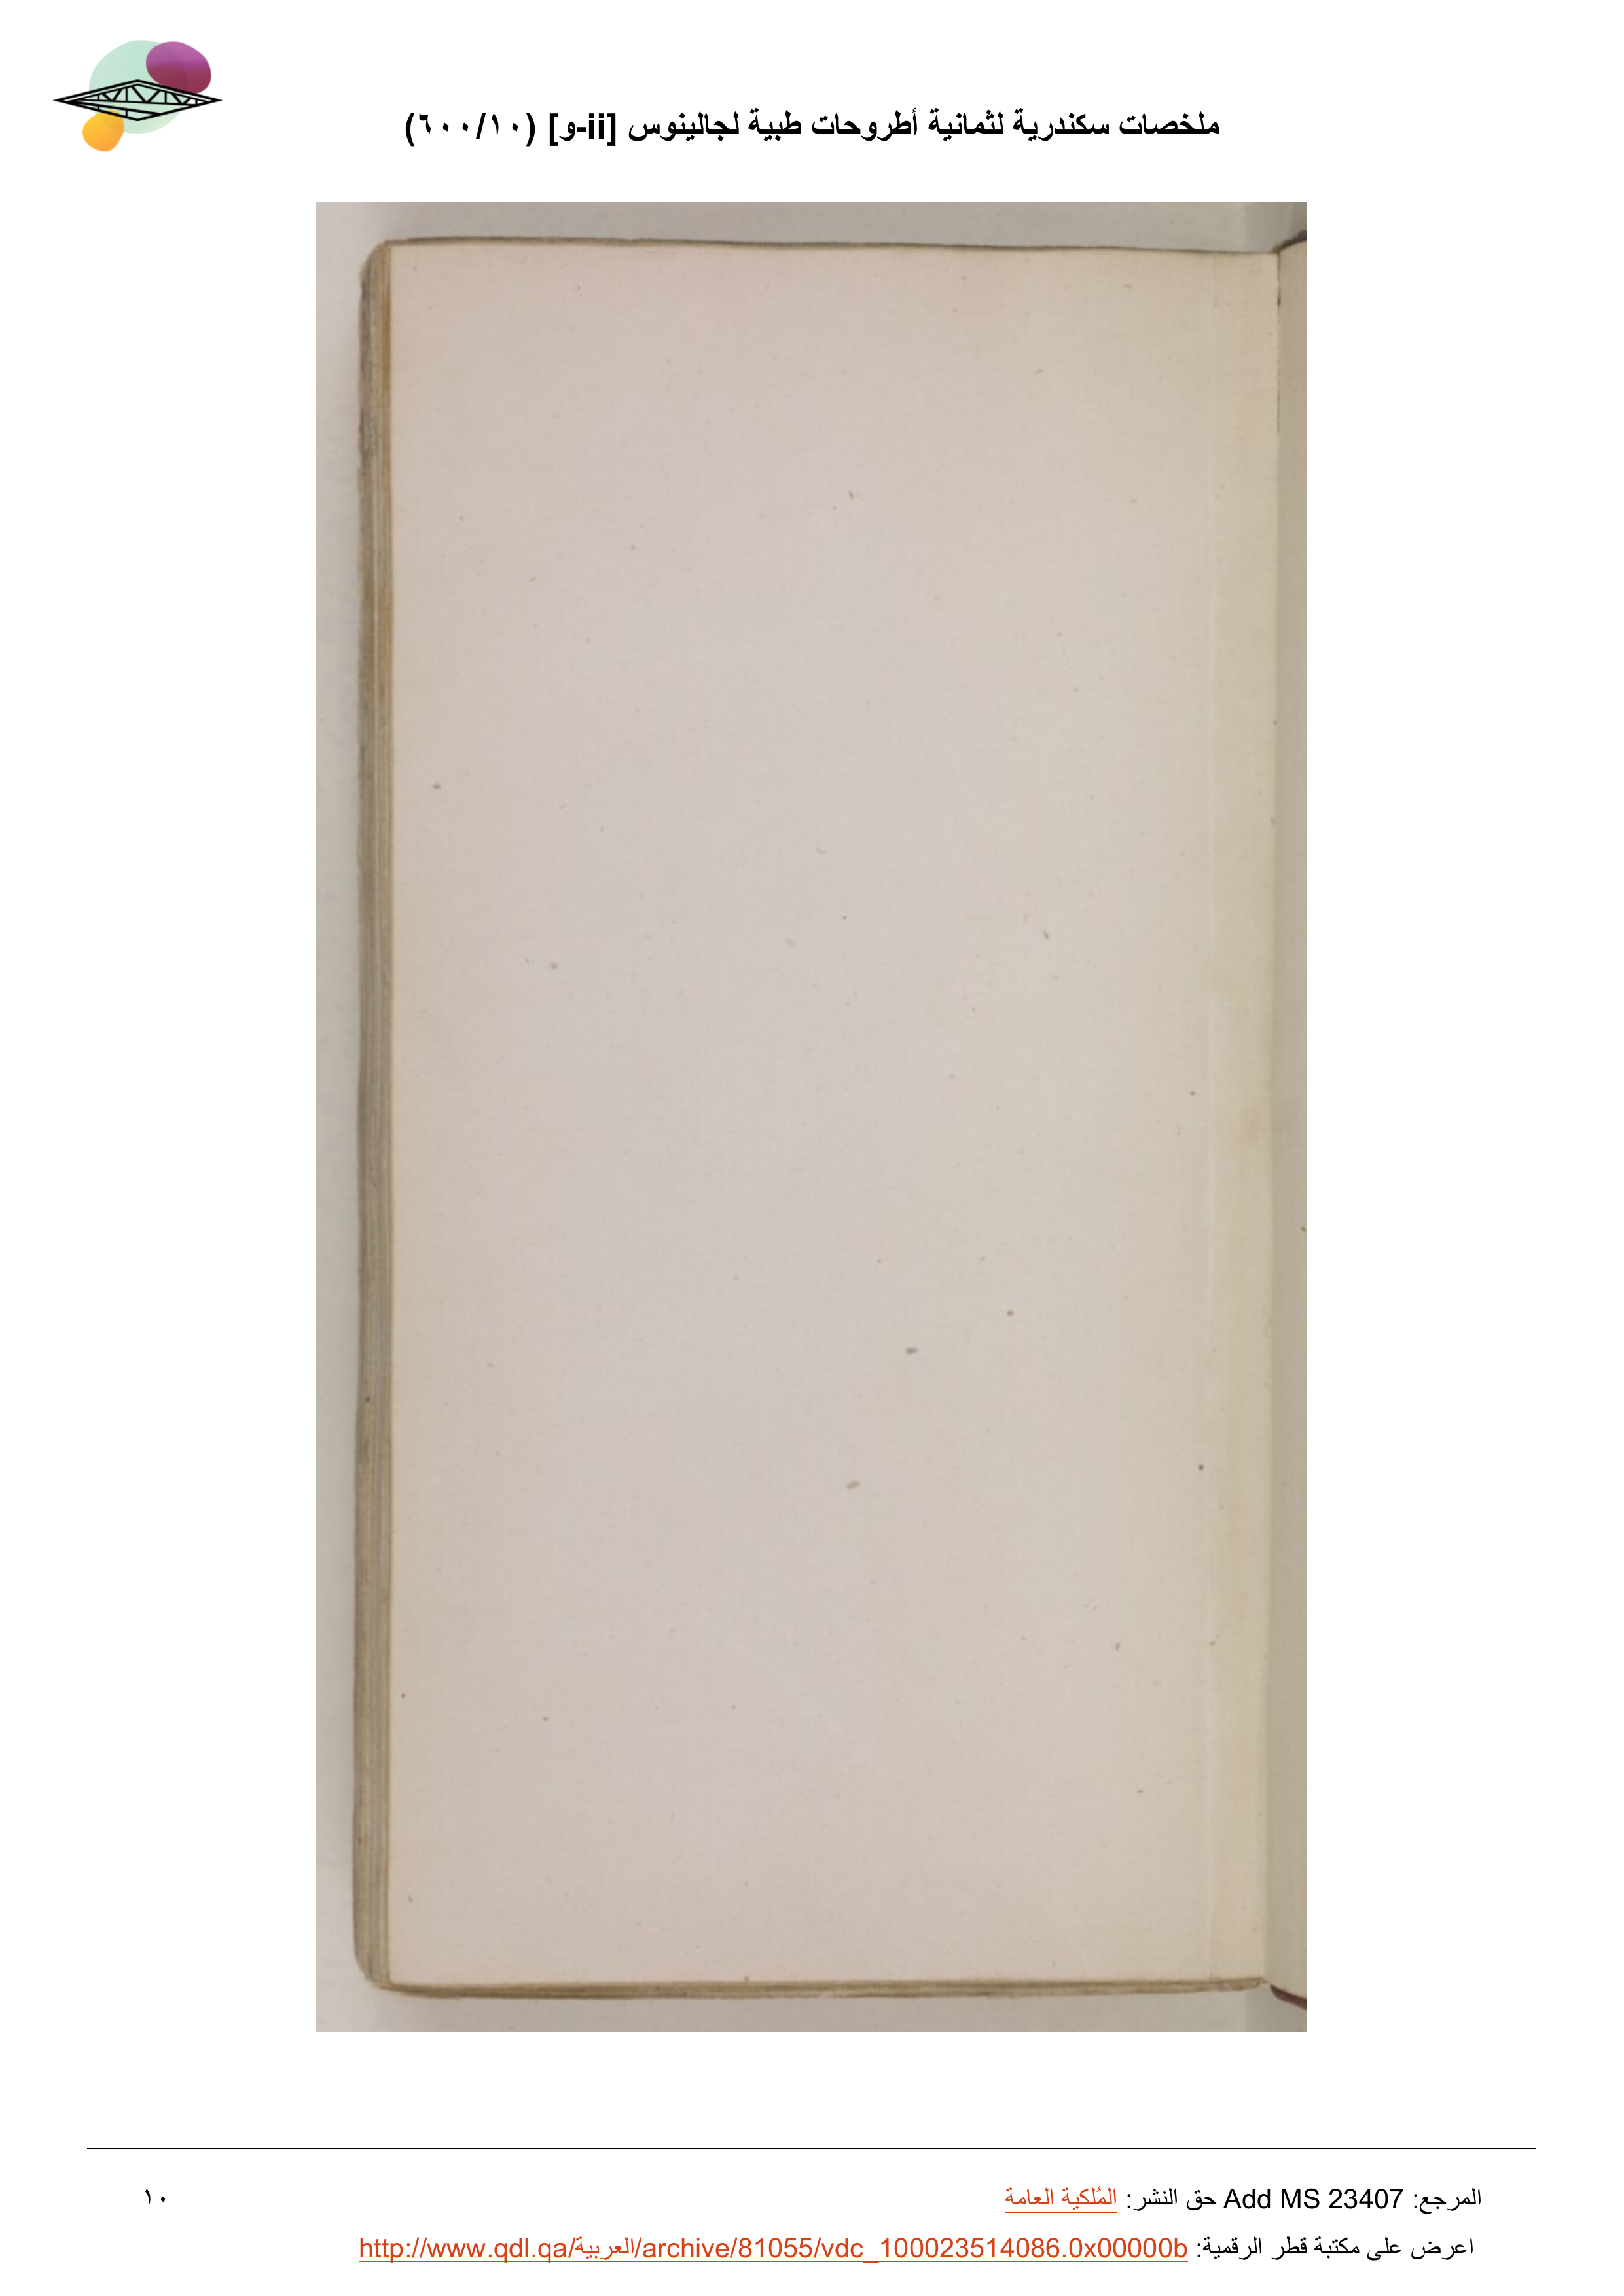 ملخصات سكندرية لثمانية أطروحات طبية لجالينوس [ii-و] (١٠/٦٠٠)
المرجع: Add MS 23407 حق النشر: المُلكية العامة
١٠
اعرض على مكتبة قطر الرقمية: http://www.qdl.qa/العربية/archive/81055/vdc_100023514086.0x00000b